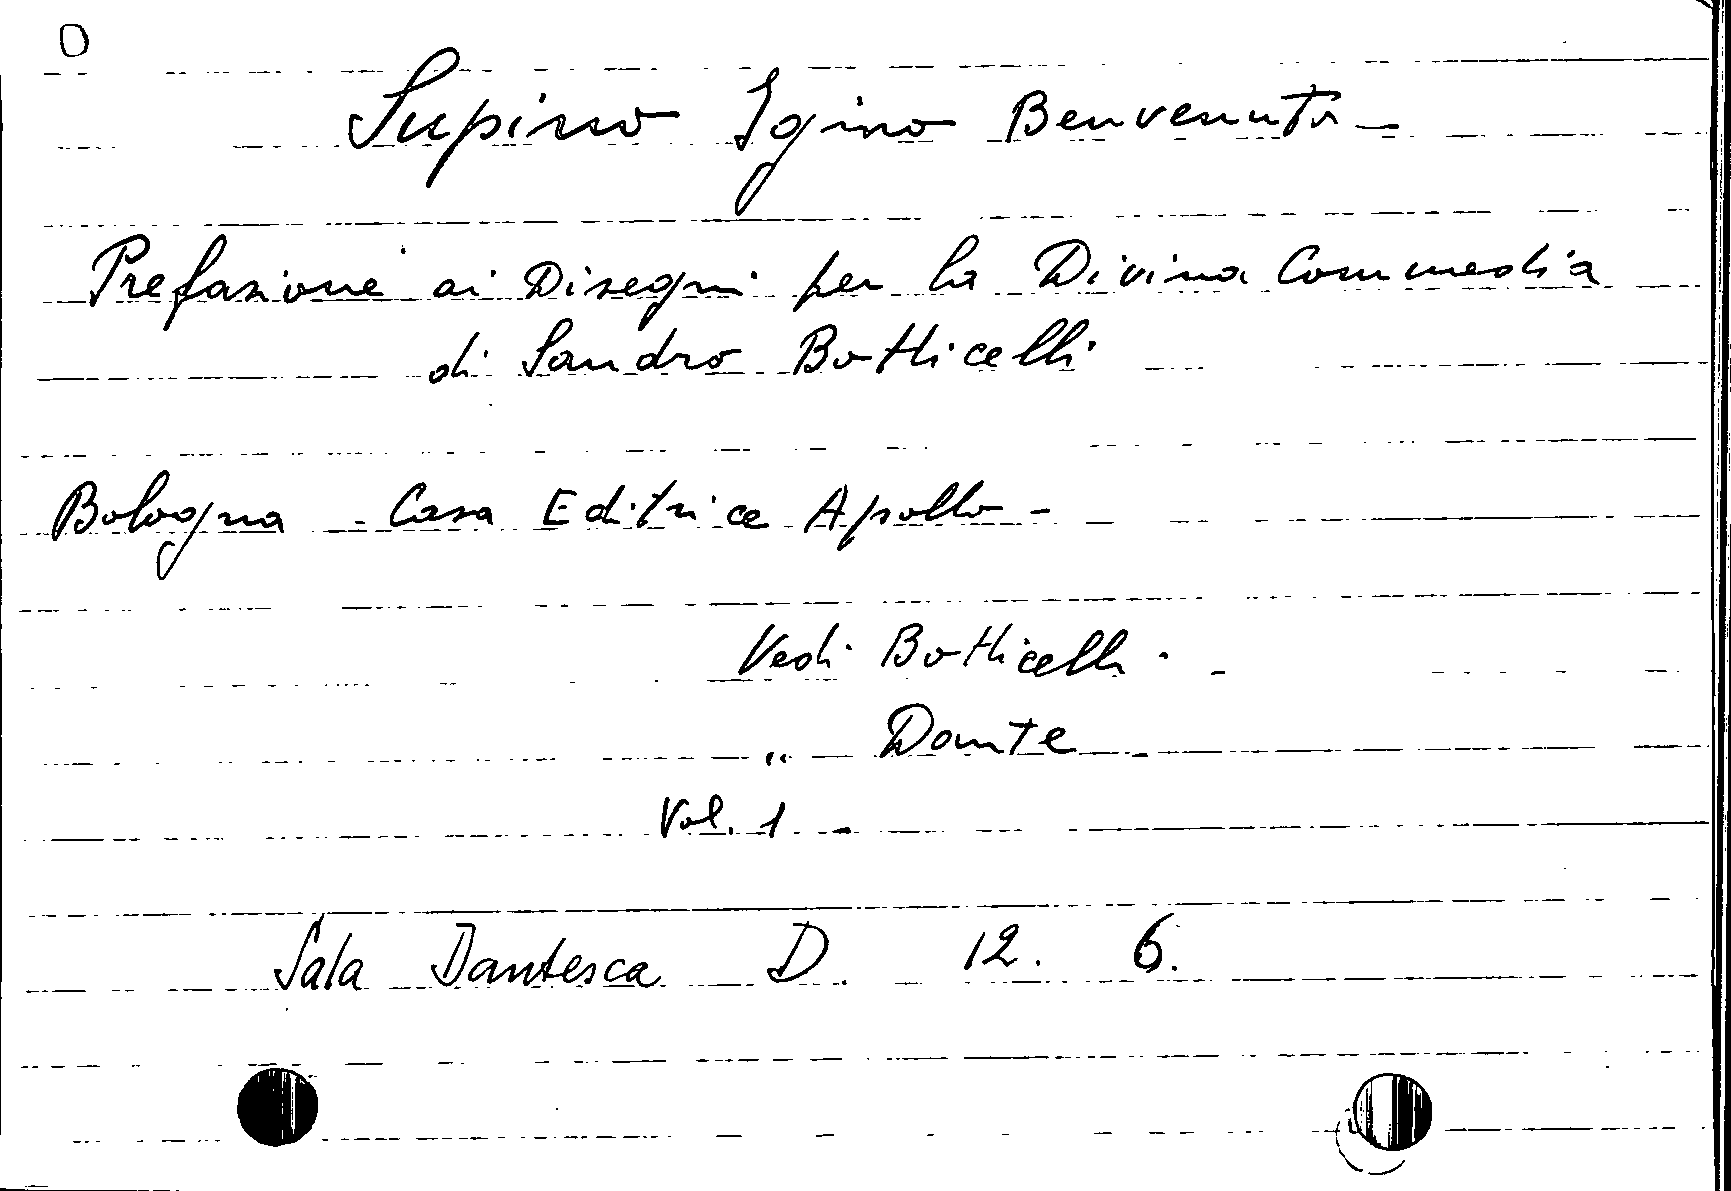 Supino Igino Benvenuto -
Prefazione ai Disegni per la Divina Commedia
di Sandro Botticelli
Bologna - Casa Editrice Apollo -
Vedi Botticelli - -
" Dante -
Vol. 1 -
Sala Dantesca D. 12. 6.